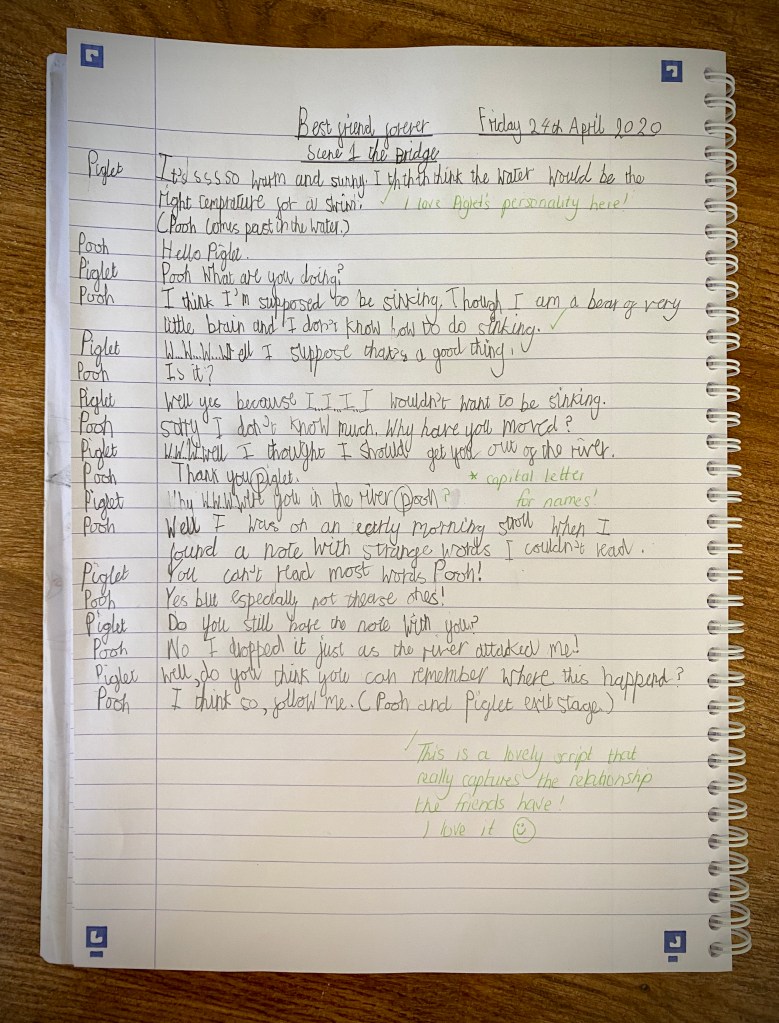 Best friend forever Friday 24th April 2020
Scene 1 the Bridge
Piglet It's sssso warm and sunny. I th th th think the water would be the
right temprature for a swim. I love Piglet's personality here!
(Pooh comes past in the water.)
Pooh Hello Piglet.
Piglet Pooh What are you doing?
Pooh I think I'm supposed to be sinking. Though I am a bear of very
little brain and I don't know how to do sinking.
Piglet W...W...W...Well I suppose that's a good thing.
Pooh Is it?
Piglet Well yes because I...I...I...I wouldn't want to be sinking.
Pooh sorry I don't know much. Why have you moved?
Piglet W.W.Well I thought I should get you out of the river.
Pooh Thank you piglet. * capital letter
Piglet Why W.W.W.were you in the river pooh? for names!
Pooh Well I was on an early morning stroll when I
found a note with strange words I couldn't read.
Piglet You can't read most words Pooh!
Pooh Yes but especally not thease ones!
Piglet Do you still have the note with you?
Pooh No I dropped it just as the river attacked me!
Piglet Well, do you think you can remember where this happend?
Pooh I think so, follow me. (Pooh and Piglet exit stage.)
This is a lovely script that
really captures the relationship
the friends have!
I love it ☺